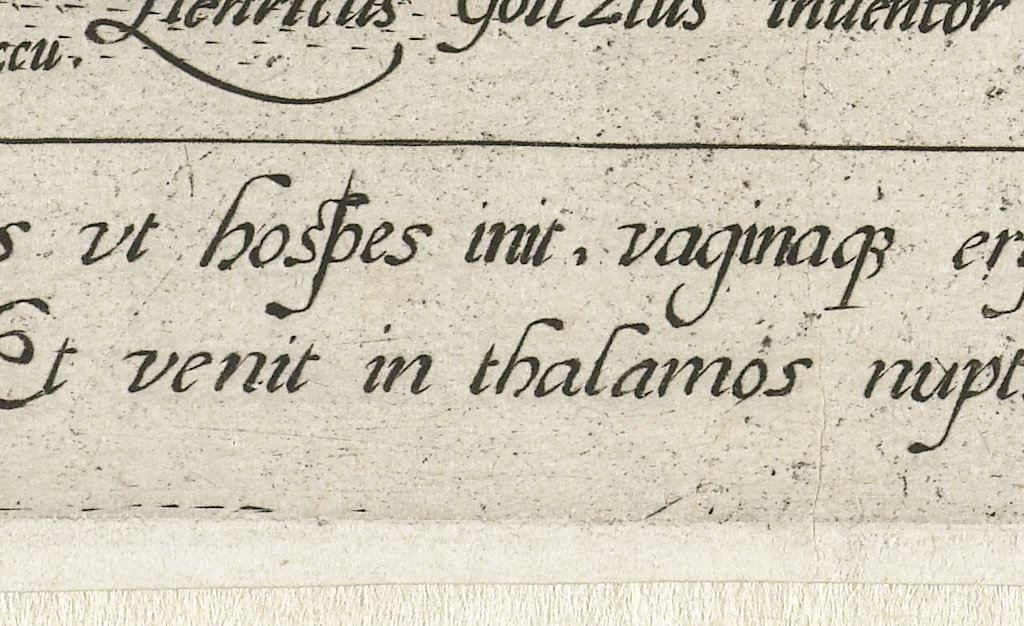 Henricus Goltzius inuentor
ccu.
s vt hospes init, vaginaqȝ
Et venit in thalamos